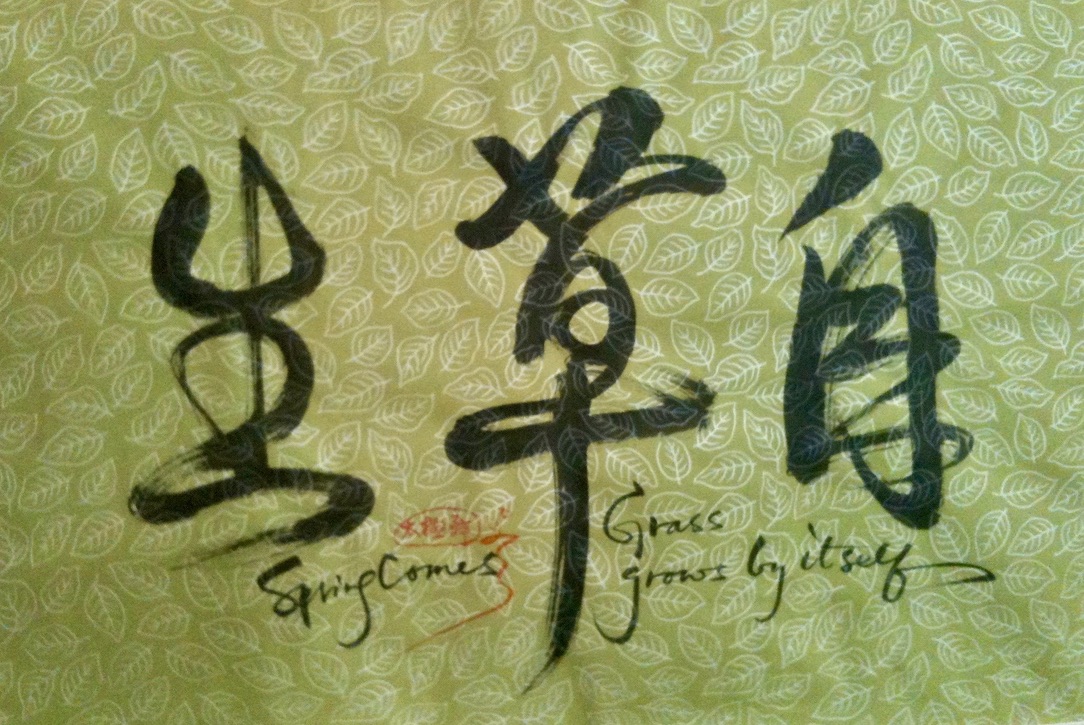 生草自
Spring Comes
Grass
grows by itself